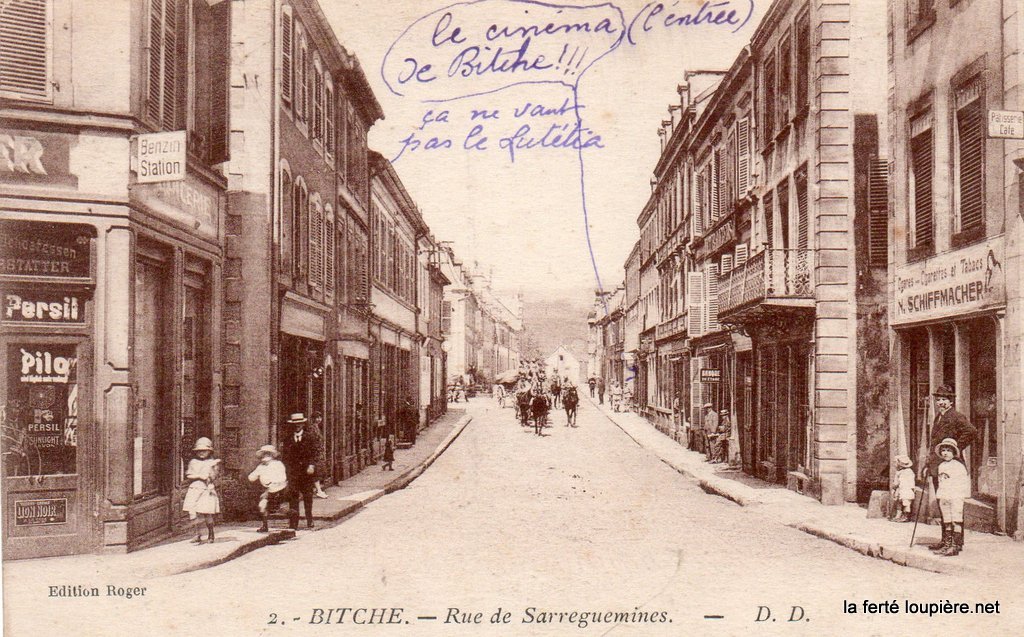 le cinéma (l'entrée)
de Bitche!!!
ça ne vaut
pas le Lutétia
Benzin
Station
Delicatessen
Persil
Pilo
PERSIL
SUNLIGHT
LION NOIR
Patisserie
Café
Cigares - Cigarettes et Tabacs
N. SCHIFFMACHER
Edition Roger
2. - BITCHE. — Rue de Sarreguemines. — D. D.
la ferté loupière.net